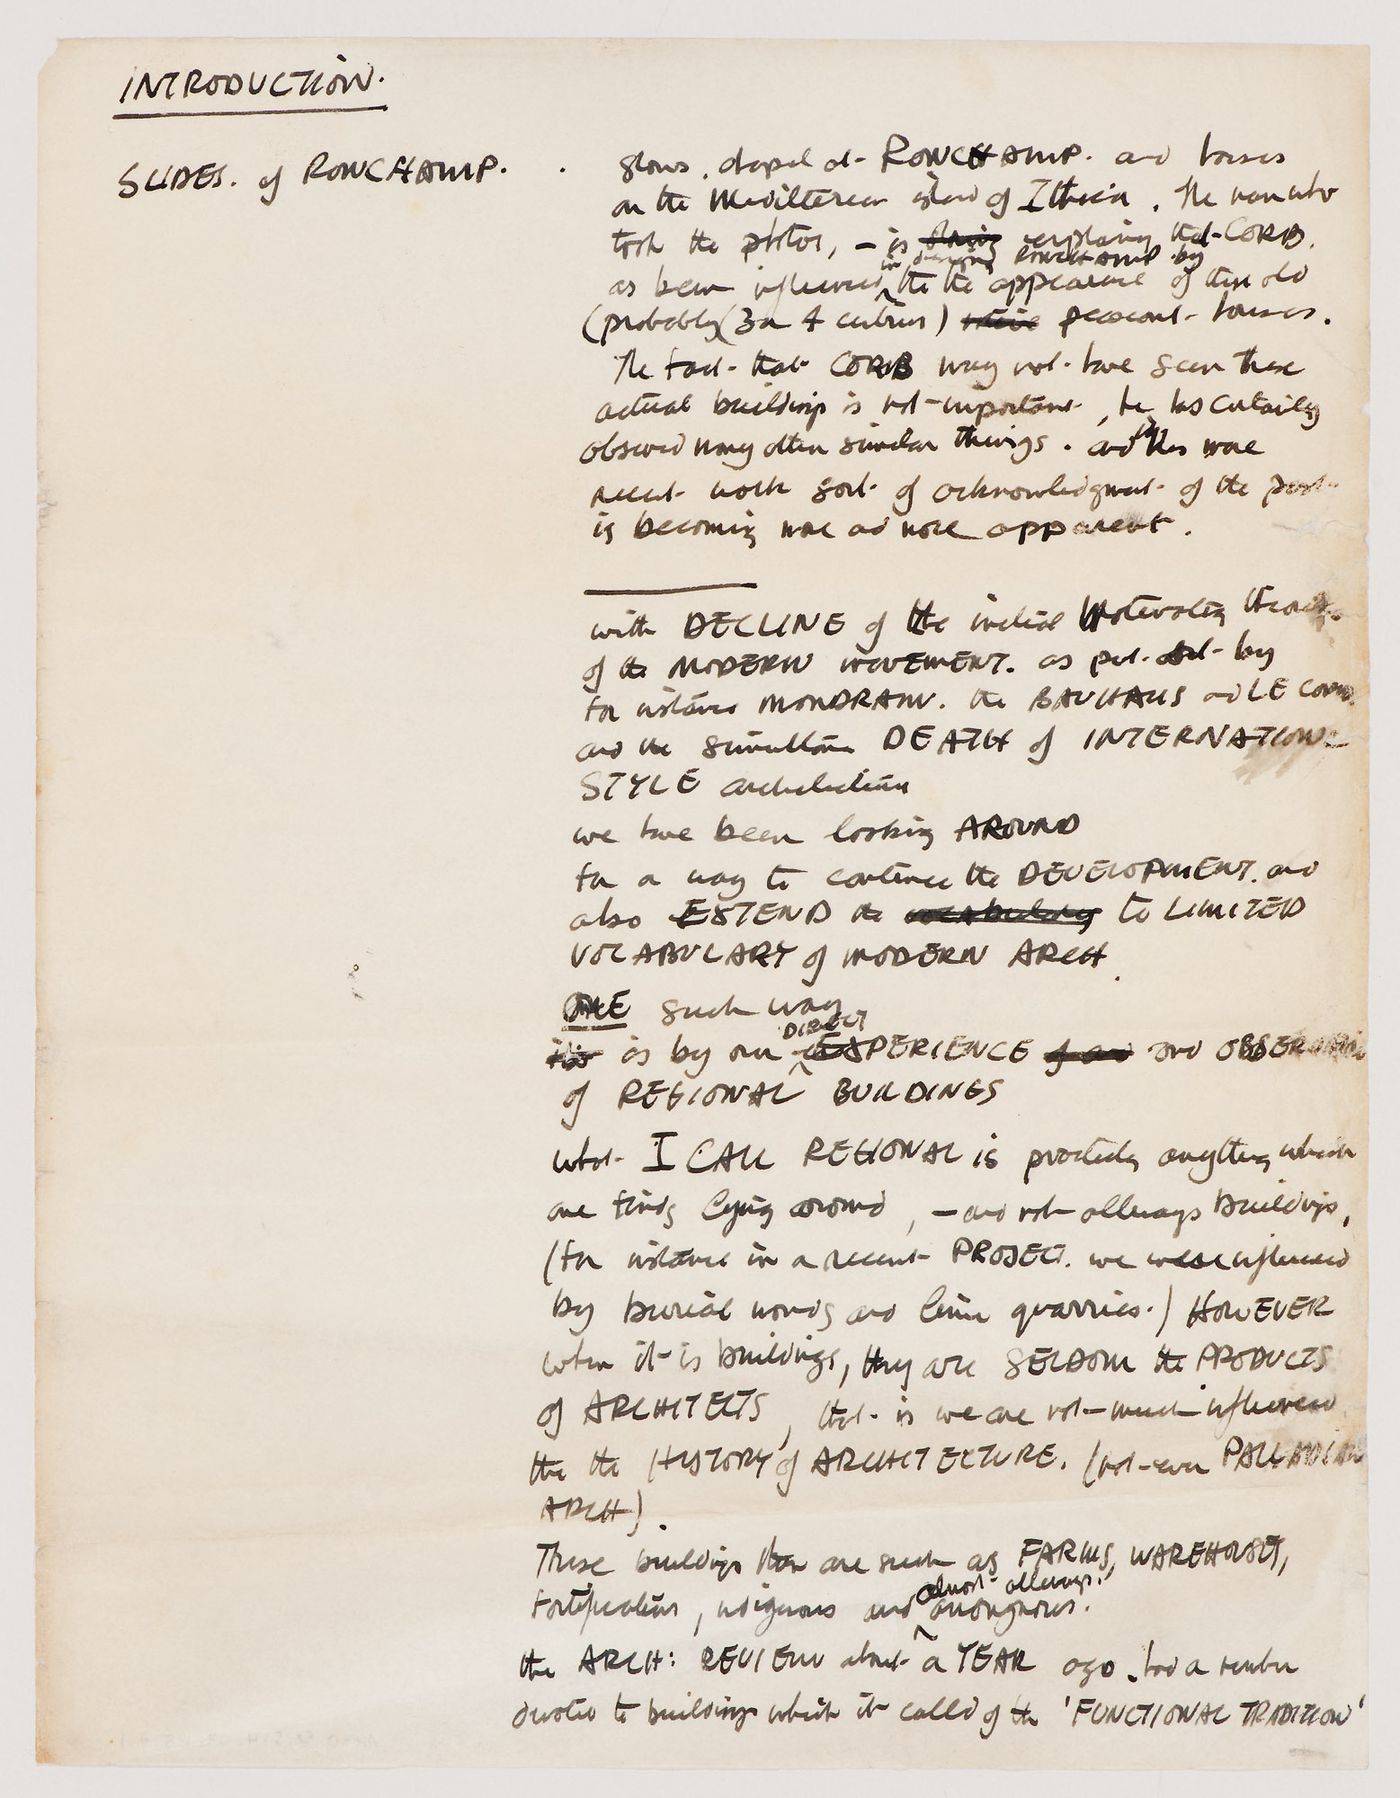 INTRODUCTION.
SLIDES. of RONCHAMP. .
Shows. chapel at RONCHAMP. and houses
on the Mediterean island of Ithica. The man who
took the photos, – is explaining that CORB.
in designing RONCHAMP by
as been influenced the the appearance of then old
(probably (3 or 4 centuries) peasant houses.
The fact that CORB may not have seen these
actual buildings is not important, he has certainly
observed many other similar things. and in his more
recent work sort of acknowledgment of the past
is becoming more and more apparent.
with DECLINE of the initial Motivating
of the MODERN MOVEMENT. as put out by
for instance MONDRAIN. the BAUHAUS and LE
and the DEATH of INTERNATIONAL
STYLE architecture
we have been looking AROUND
for a way to continue the DEVELOPMENT. and
also EXTEND the vocabulary to LIMITED
VOCABULARY of MODERN ARCH.
ONE such way
DIRECT
is by our EXPERIENCE and OBSERVATION
of REGIONAL BUILDINGS
what I CALL REGIONAL is practicly anything which
one finds lying around, – and not allways buildings,
(for instance in a recent PROJECT. we were influenced
by burial mounds and lime quarries.) HOWEVER
when it is buildings, they are SELDOM the PRODUCTS
of ARCHITECTS, that is we are not much influenced
the the HISTORY of ARCHITECTURE. (not even PALLADIAN
ARCH).
These buildings then are such as FARMS, WAREHOUSES,
almost allways.
fortifications, and anongmous.
the ARCH: REVIEW about a YEAR ago. had a number
devoted to buildings which it called of the 'FUNCTIONAL TRADITION'